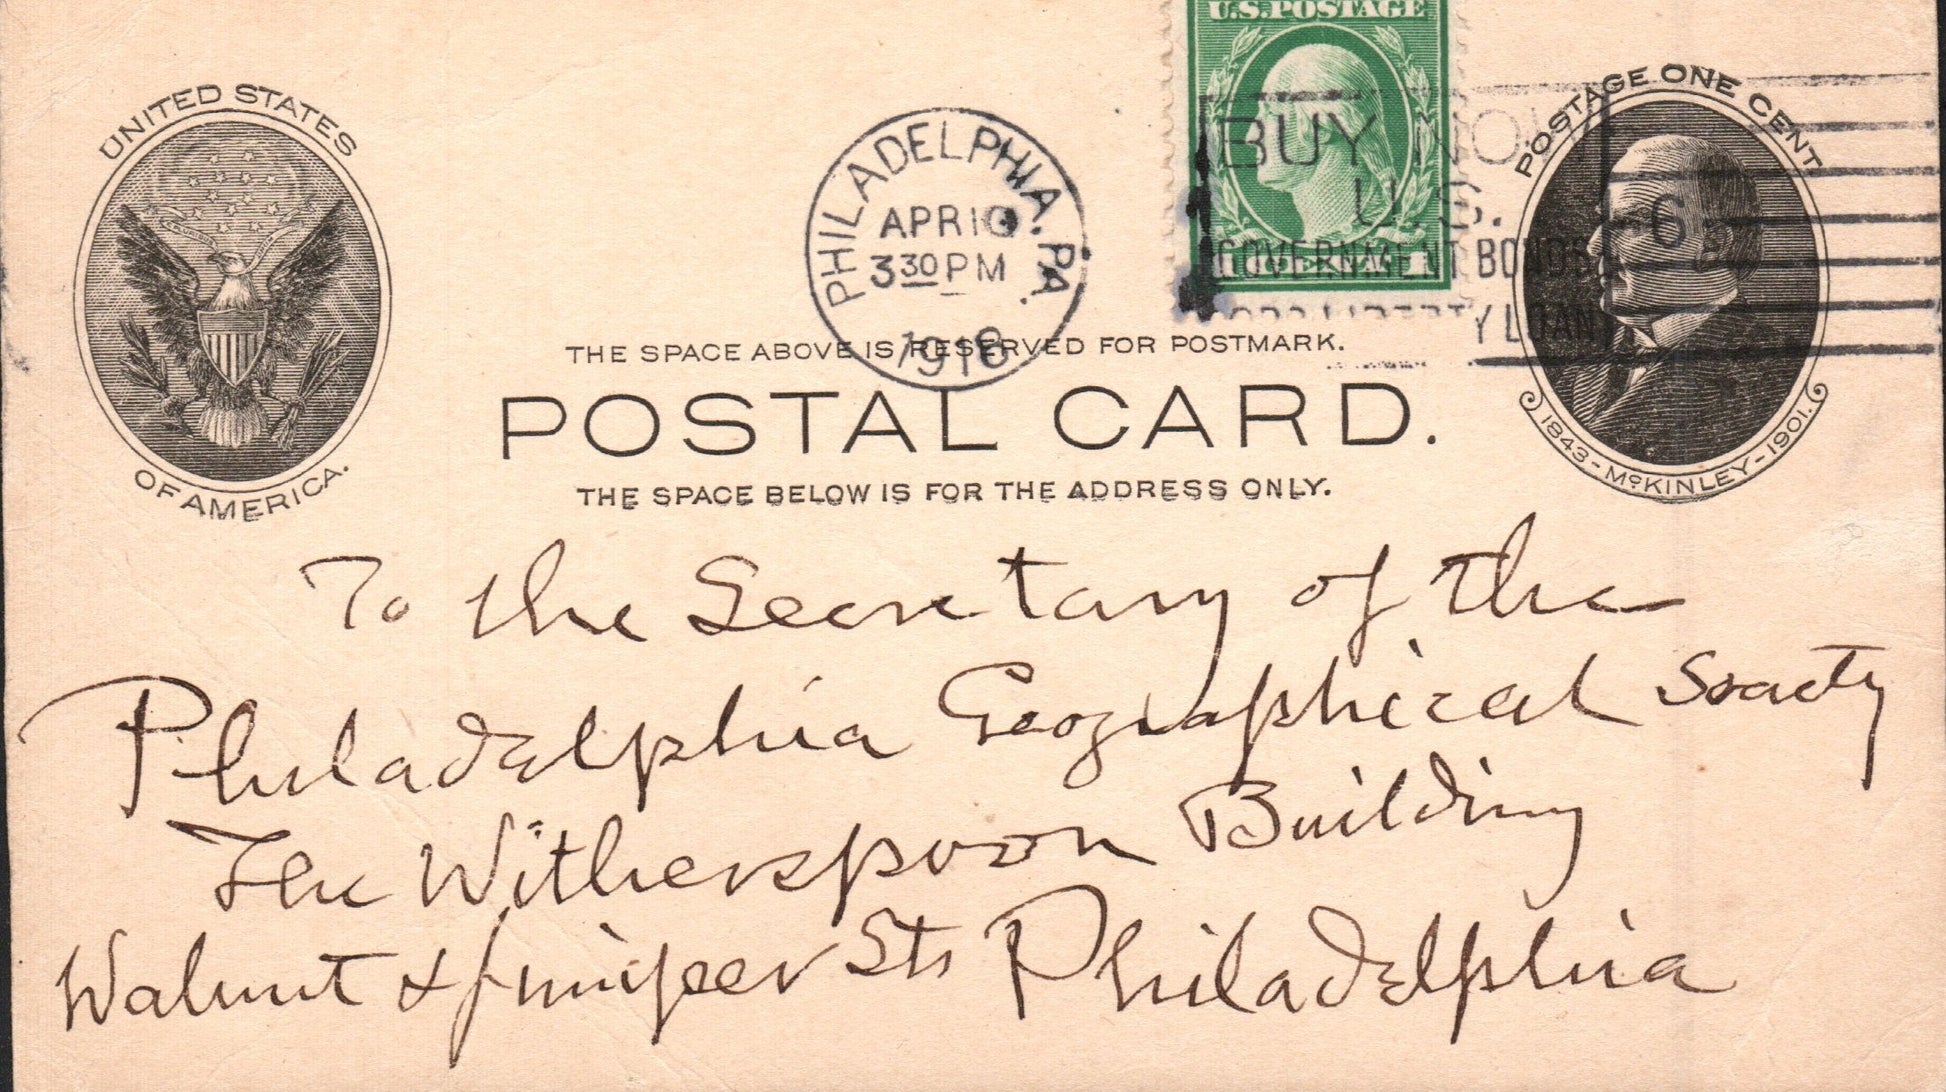 U.S.POSTAGE
UNITED STATES
OF AMERICA.
PHILADELPHIA. PA.
APR 10
3 30 PM
1918
BUY NOW
U.S.
GOVERNMENT BONDS
LIBERTY LOAN
6
POSTAGE ONE CENT
1843-McKINLEY-1901.
THE SPACE ABOVE IS RESERVED FOR POSTMARK.
POSTAL CARD.
THE SPACE BELOW IS FOR THE ADDRESS ONLY.
To the Secretary of the
Philadelphia Geographical Society
The Witherspoon Building
Walnut & Juniper Sts Philadelphia